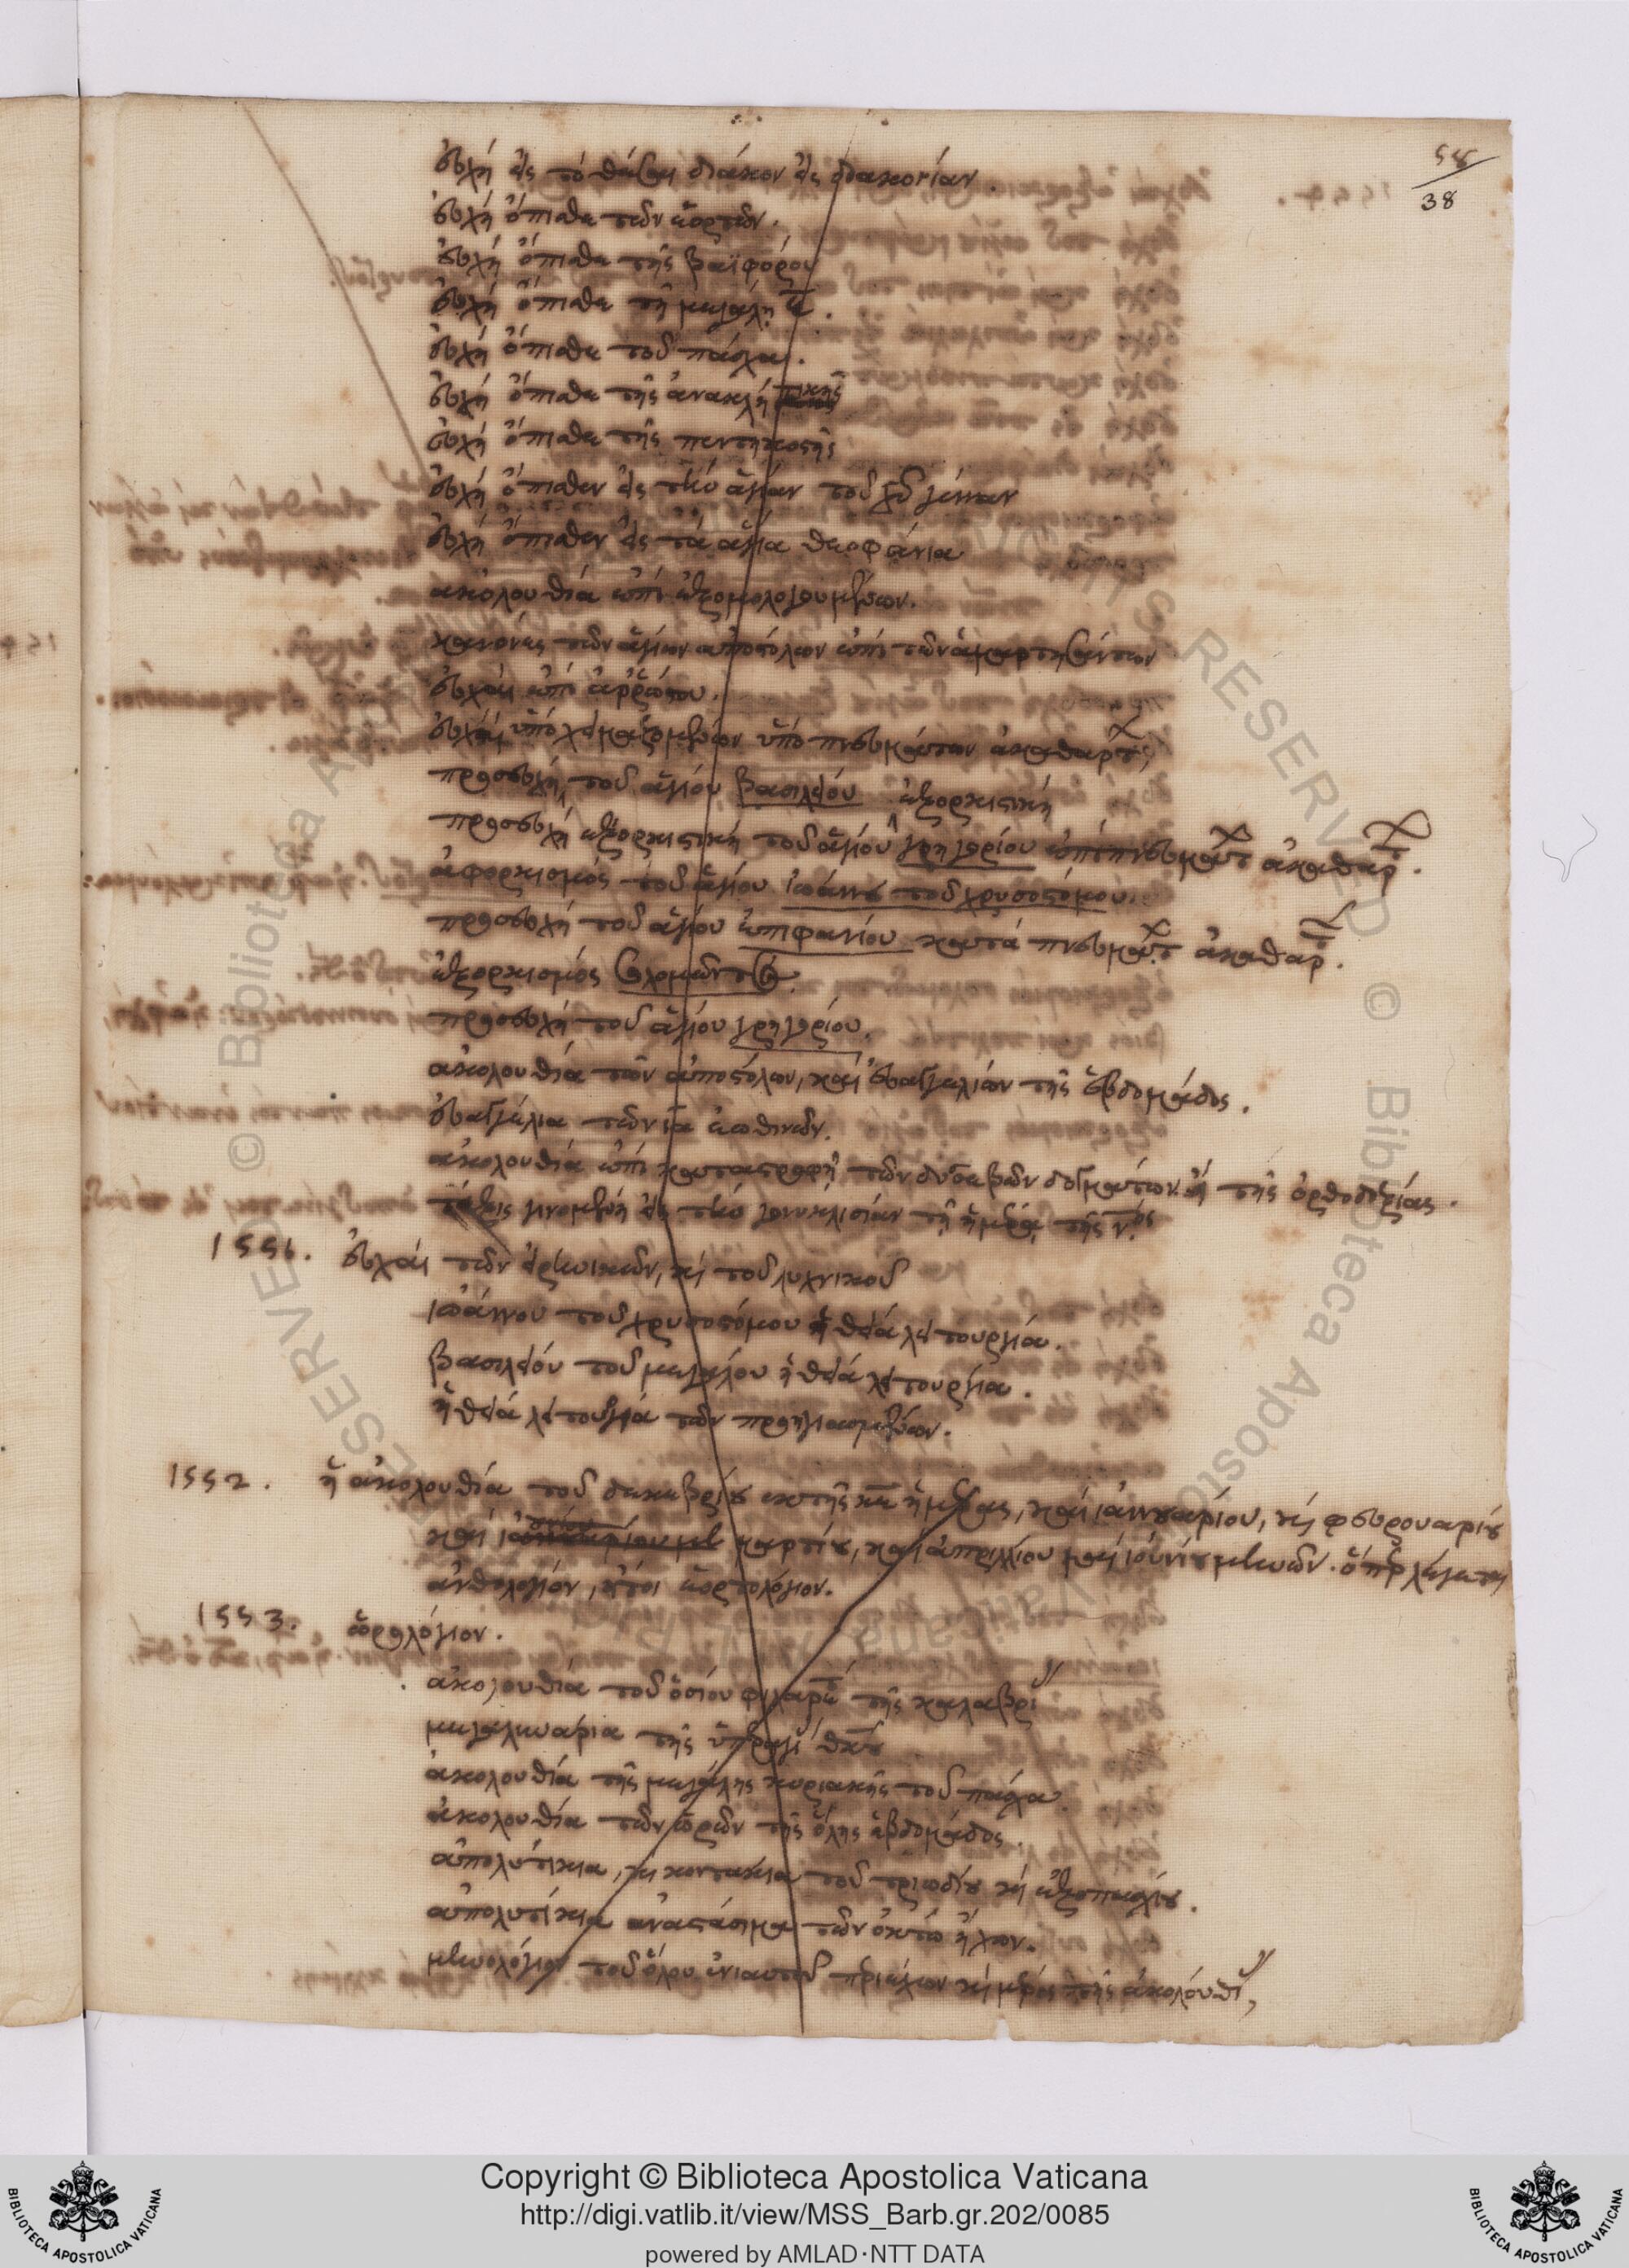 58
38
εὐχή εἰς τό θεῖναι διάκον εἰς διακονίαν.
εὐχή ὄπισθε τῶν ἑορτῶν.
εὐχή ὄπισθε τῆς βαϊφόρου
εὐχή ὄπισθε τῇ μεγάλῃ ε̄.
εὐχή ὄπισθε τοῦ πάσχα.
εὐχή ὄπισθε τῆς ἀνακλή τικῆς
εὐχή ὄπισθε τῆς πεντηκοστῆς
εὐχή ὄπισθεν εἰς τήν ἁγίαν τοῦ χ̄ῡ γένναν
εὐχή ὄπισθεν εἰς τά ἅγια θεοφάνια
ἀκολουθία ἐπί ἐξομολογουμένων.
κανόνες τῶν ἁγίων ἀποστόλων ἐπί τῶν ἁμαρτησάντων
εὐχαί ἐπί ἀρρώστου.
εὐχαί ὑπό χειμαζομένων ὑπό πνευμάτων ἀκαθάρτ
προσευχή τοῦ ἁγίου βασιλείου ἐξορκιστική
προσευχή ἐξορκιστική τοῦ ἁγίου γρηγορίου ἐπί πνευμάτ ἀκαθάρ.
ἀφορκισμός τοῦ ἁγίου ἰωάννου τοῦ χρυσοστόμου.
προσευχή τοῦ ἁγίου ἐπιφανίου κατά πνευμάτ ἀκαθάρ.
ἐξορκισμός σολομῶντος.
προσευχή τοῦ ἁγίου γρηγορίου.
ἀκολουθία τῶν ἀποστόλων, καί εὐαγγελίων τῆς ἑβδομάδος.
εὐαγγέλια τῶν ῑᾱ ἑωθινῶν.
ἀκολουθία ἐπί καταστροφῇ τῶν δυσσεβῶν δογμάτων τῆς ὀρθοδοξίας.
τάξις γινομένη εἰς τήν γονυκλισίαν τῇ ἡμέρᾳ τῆς ν.ῆς
1551. εὐχαί τῶν εἰρηνικῶν, κί τοῦ λυχνικοῦ
ἰωάννου τοῦ χρυσοστόμου ἡ θεία λειτουργία.
βασιλείου τοῦ μεγάλου ἡ θεία λειτουργία.
ἡ θεία λειτουργία τῶν προηγιασμένων.
1552. ἡ ἀκολουθία τοῦ δεκεβρίου ἐκ τῆς κ̄ε̄ ἡμέρας, καί ἰαννουαρίου, κί φευρουαρίου
καί μαρτίου, καί ἀπριλλίου μαί ἰουνίου μηνῶν. ὅπερ λέγεται
ἀνθολόγιον, ἤτοι ἑορτολόγιον.
1553. ὡρολόγιον.
ἀκολουθία τοῦ ὁσίου φιλαρέτ τῆς καλαβρί
μεγαλυνάρια τῆς ὑπεραγί θ̄κ̄ου
ἀκολουθία τῆς μεγάλης κυριακῆς τοῦ πάσχα
ἀκολουθία τῶν ὡρῶν τῆς ὅλης ἑβδομάδος.
ἀπολυτίκια, κι κοντάκια τοῦ τριωδίου κί ἐξαπασχίου.
ἀπολυτίκια ἀναστάσιμα τῶν ὀκτώ ἤχων.
μηνολόγιον τοῦ ὅλου ἐνιαυτοῦ περιέχων κί μέρος τῆς ἀκολουθί
Copyright © Biblioteca Apostolica Vaticana
http://digi.vatlib.it/view/MSS_Barb.gr.202/0085
powered by AMLAD·NTT DATA